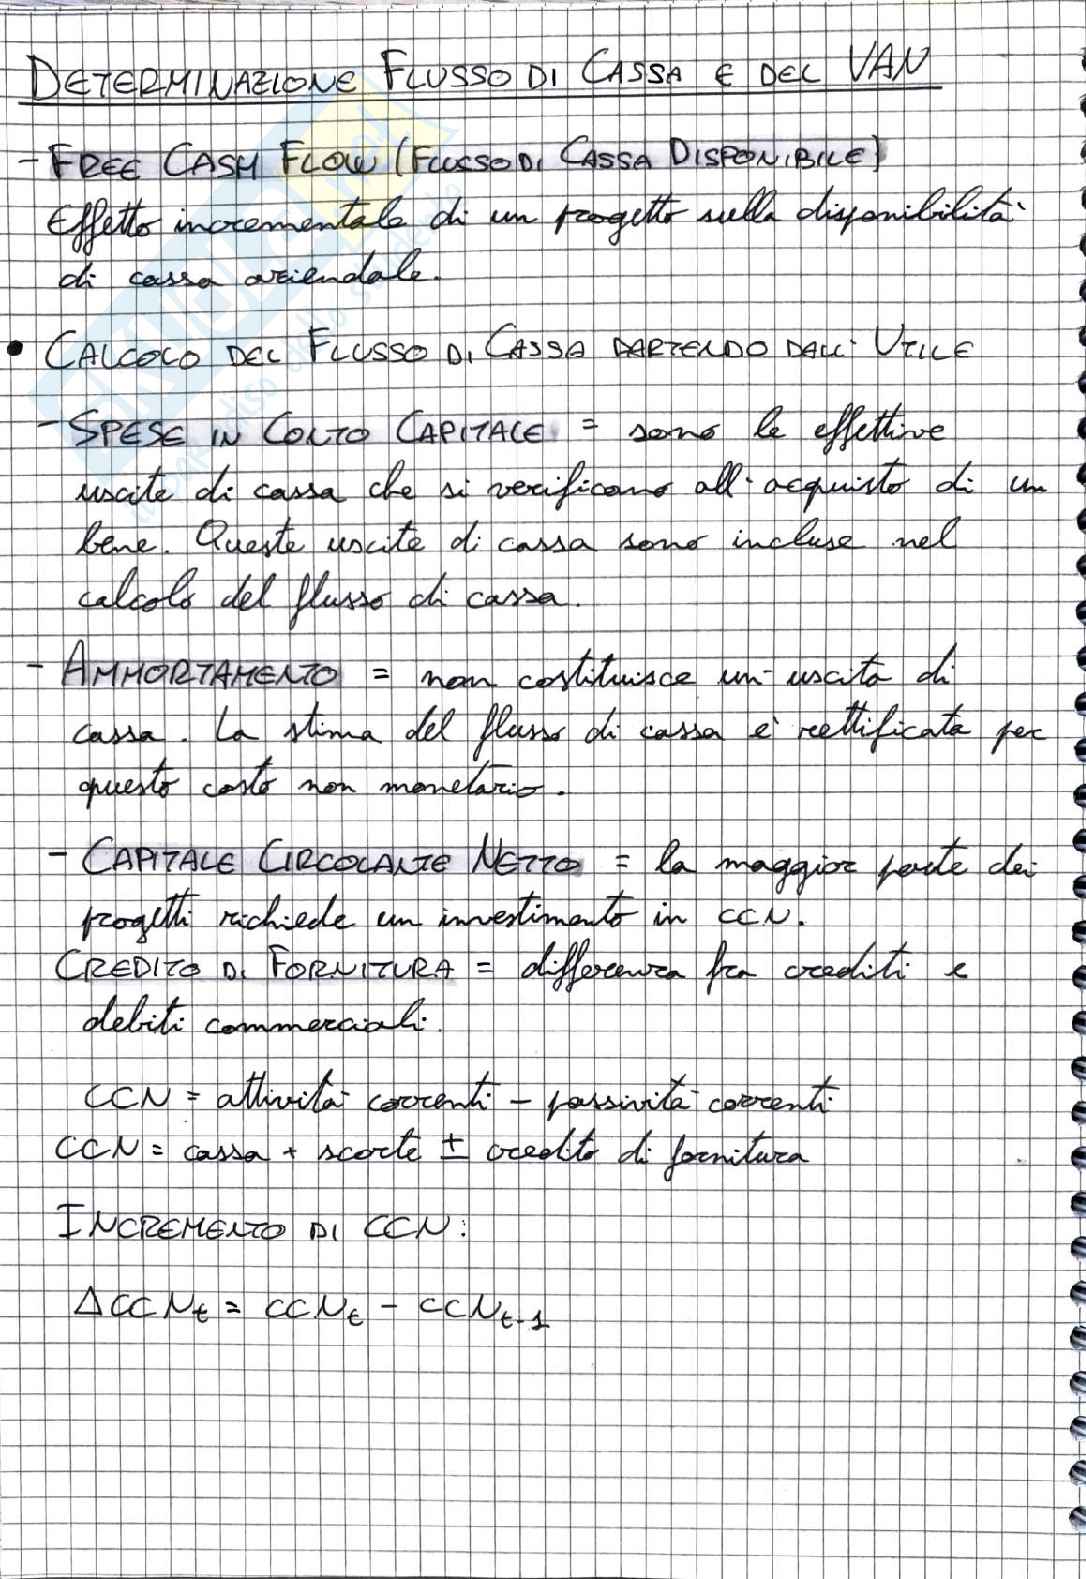 DETERMINAZIONE FLUSSO DI CASSA E DEL VAN
- FREE CASH FLOW (FLUSSO DI CASSA DISPONIBILE)
Effetto incrementale di un progetto sulla disponibilità
di cassa aziendale.
• CALCOLO DEL FLUSSO DI CASSA PARTENDO DALL' UTILE
- SPESE IN CONTO CAPITALE = sono le effettive
uscite di cassa che si verificano all'acquisto di un
bene. Queste uscite di cassa sono incluse nel
calcolo del flusso di cassa.
- AMMORTAMENTO = non costituisce un'uscita di
cassa. La stima del flusso di cassa è rettificata per
questo costo non monetario.
- CAPITALE CIRCOLANTE NETTO = la maggior parte dei
progetti richiede un investimento in CCN.
CREDITO DI FORNITURA = differenza fra crediti e
debiti commerciali.
CCN = attività correnti - passività correnti
CCN = cassa + scorte ± credito di fornitura
INCREMENTO DI CCN:
ΔCCNt = CCNt - CCNt-1